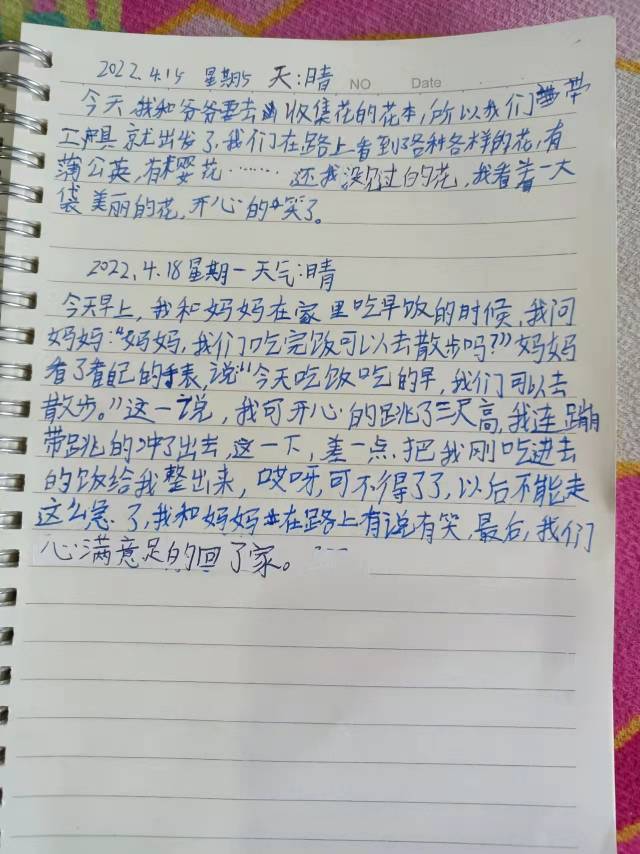 2022.4.15 星期5 天:晴
NO Date
今天我和爷爷要去收集花的花本,所以我们带
工具就出发了,我们在路上看到了各种各样的花,有
蒲公英,有樱花……还我没见过的花,我看着一大
袋美丽的花,开心的笑了。
2022.4.18星期一天气:晴
今天早上,我和妈妈在家里吃早饭的时候,我问
妈妈:“妈妈,我们吃完饭可以去散步吗?”妈妈
看了看自己的手表,说“今天吃饭吃的早,我们可以去
散步。”这一说,我可开心的跳了三尺高,我连蹦
带跳的冲了出去,这一下,差一点把我刚吃进去
的饭给我整出来,哎呀,可不得了了,以后不能走
这么急了,我和妈妈在路上有说有笑,最后,我们
心满意足的回了家。